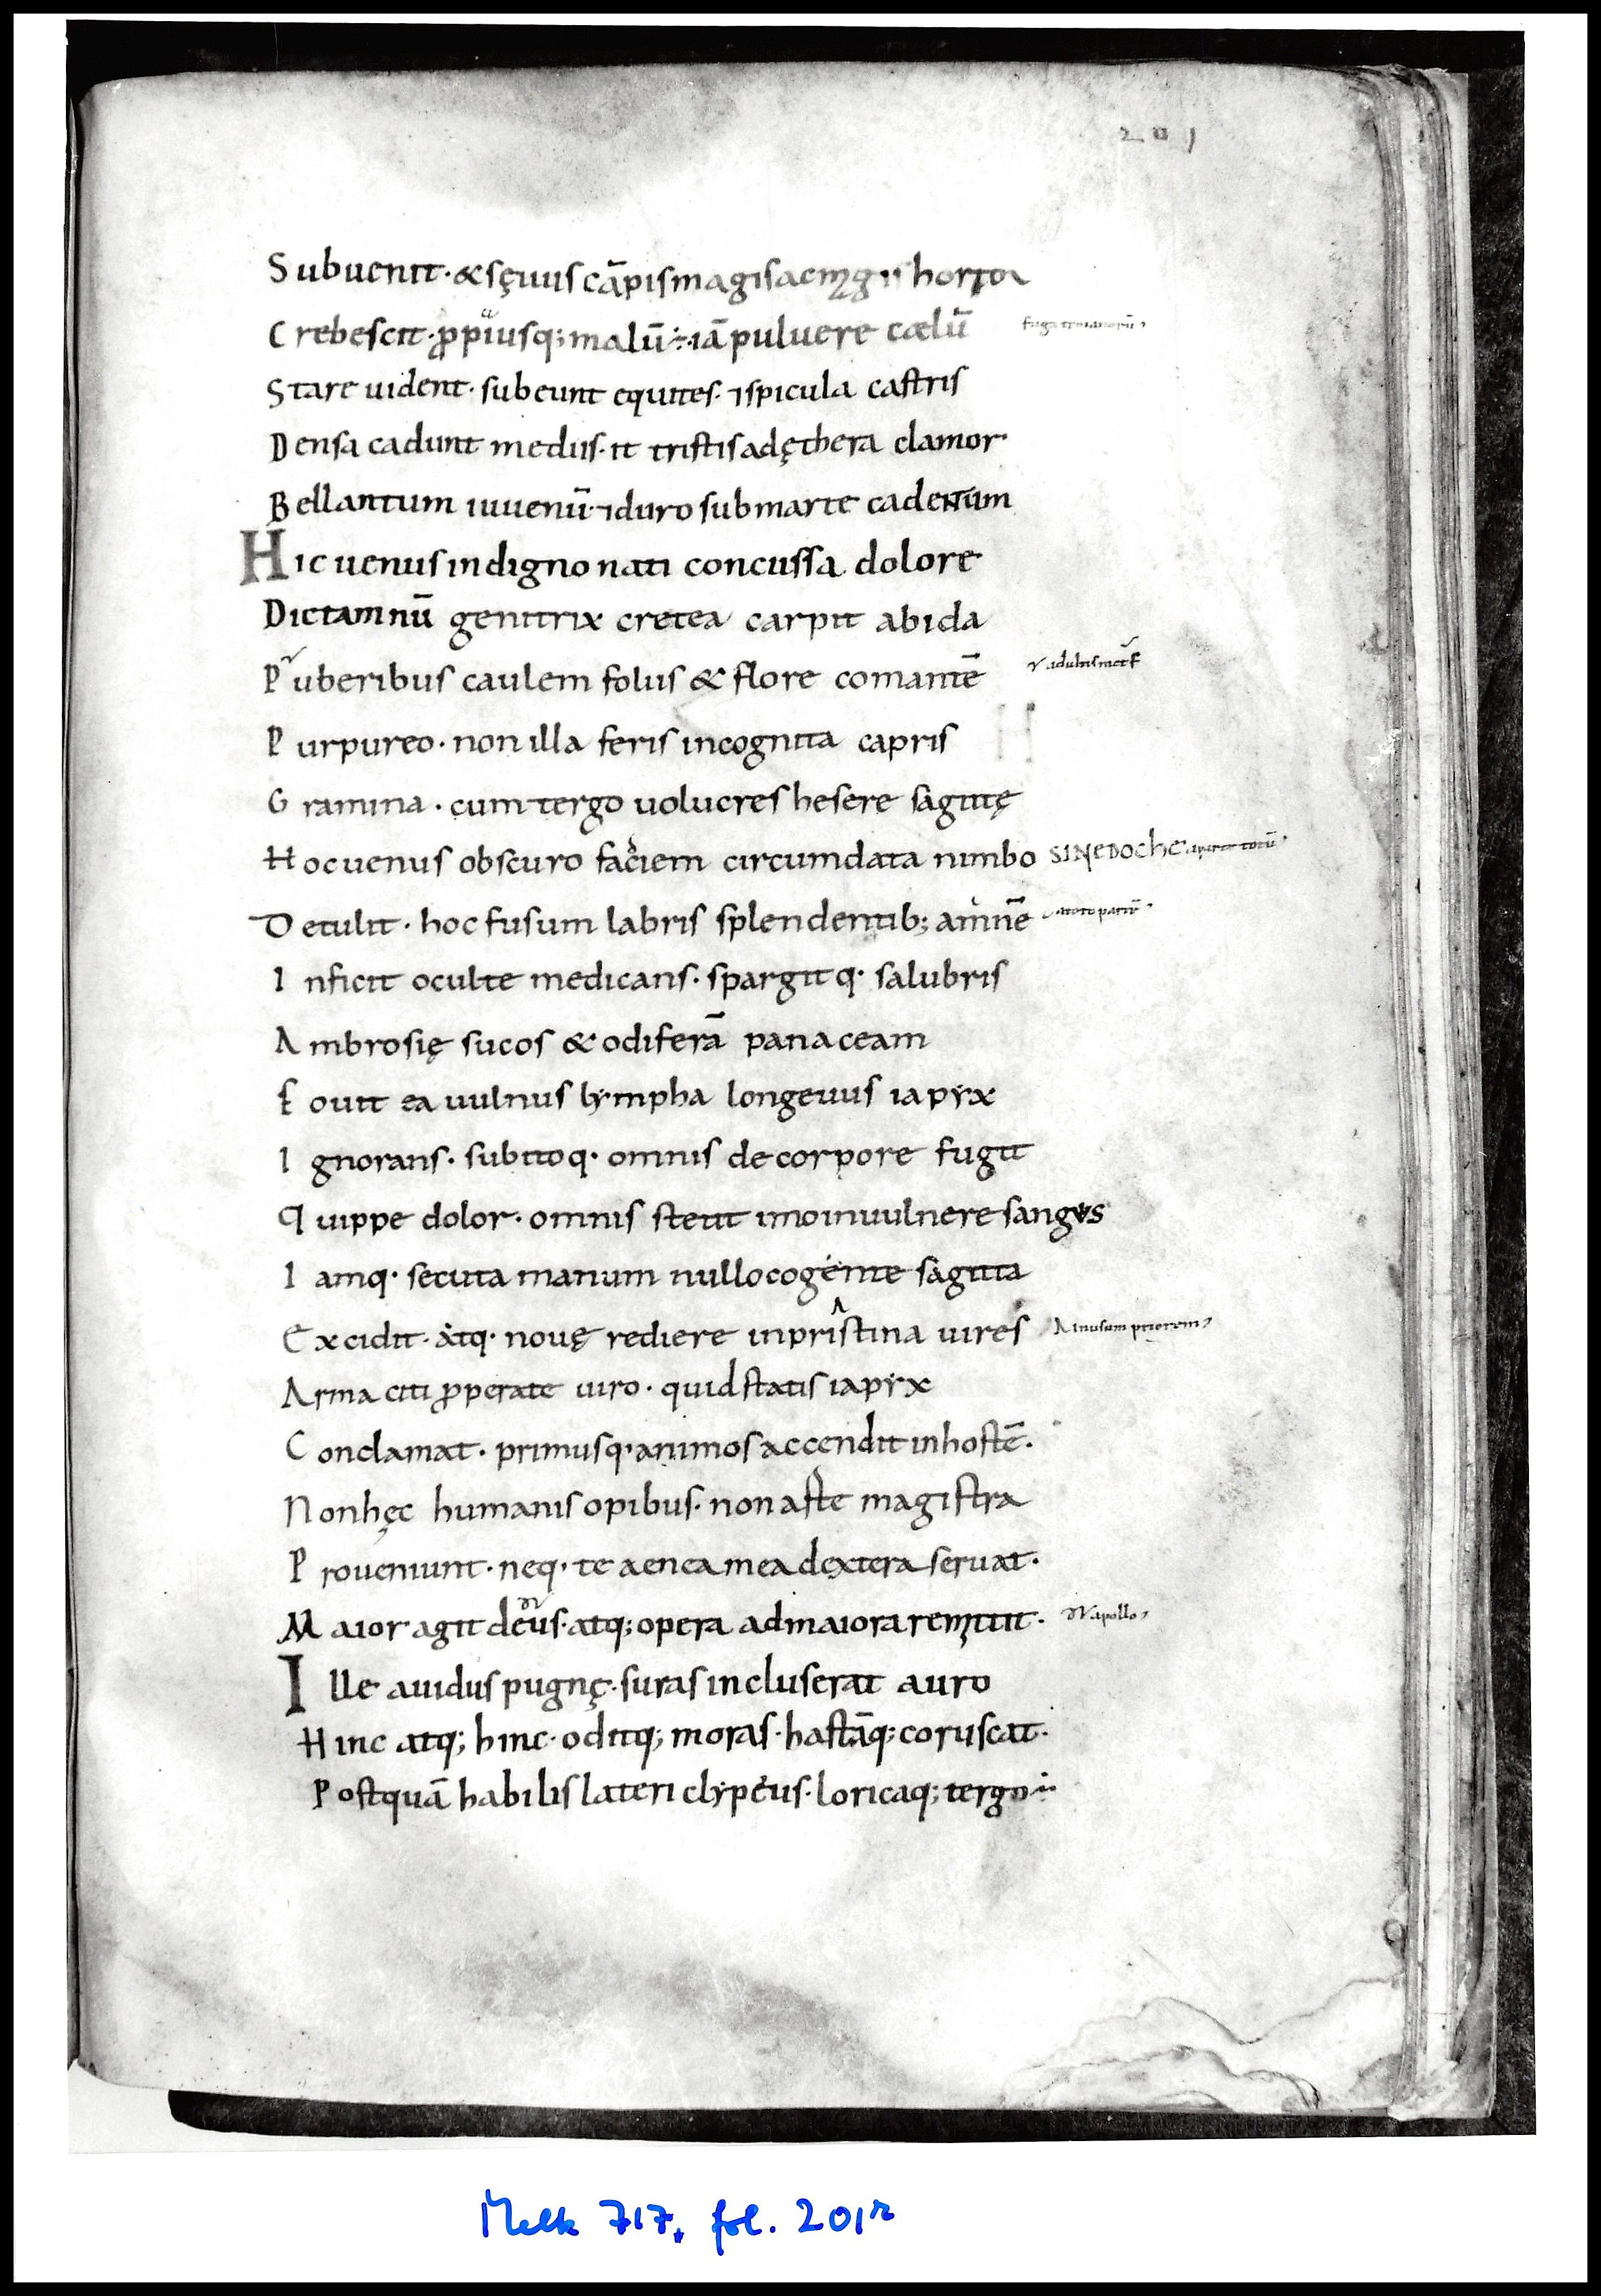 201
Subuenit· & sęuus cāpis magis ac magis horror
Crebescit· ꝓpiusq; malū ÷· iā puluere cælū
Stare uident· subeunt equites· ⁊ spicula castris
Densa cadunt mediis· it tristis ad ęthera clamor·
Bellantum iuuenū· ⁊ duro sub marte cadentum
Hic uenus indigno nati concussa dolore
Dictamnū genitrix cretea carpit ab ida
Puberibus caulem foliis & flore comantē
Purpureo· non illa feris incognita capris
Gramina· cum tergo uolucres hesere sagittę
Hoc uenus obscuro faciem circumdata nimbo SINEDOCHE a parte totū
Detulit· hoc fusum labris splendentib; amnē
Inficit oculte medicans· spargitq· salubris
Ambrosię sucos & odiferā panaceam
Fouit ea uulnus lympha longeuus iapyx
Ignorans· subitoq· omnis de corpore fugit
Quippe dolor· omnis stetit imo in uulnere sangus
Iamq· secuta manum nullo cogente sagitta
Excidit· atq· nouę rediere in pristina uires in usum priorem
Arma citi ꝓperate uiro· quid statis iapyx
Conclamat· primusq· animos accendit in hostē·
Non hęc humanis opibus· non aste magistra
Proueniunt· neq· te aenea mea dextera seruat·
Maior agit deus· atq; opera ad maiora remittit· apollo
Ille auidus pugnę· suras incluserat auro
Hinc atq; hinc· oditq; moras· hastāq; coruscat·
Postquā habilis lateri clypeus· loricaq; tergo ÷
Melk 717, fol. 201r